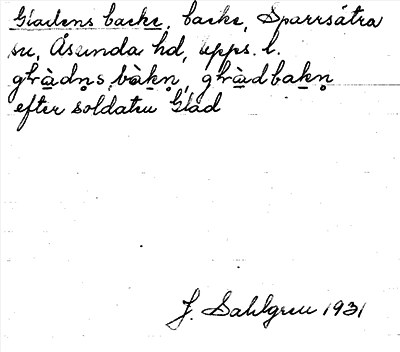 Gladens backe, backe, Sparrsätra
sn, Åsunda hd, Upps. l.
glàdn̥s bàkn̥, glàdbakn̥
efter soldaten Glad
J. Sahlgren 1931